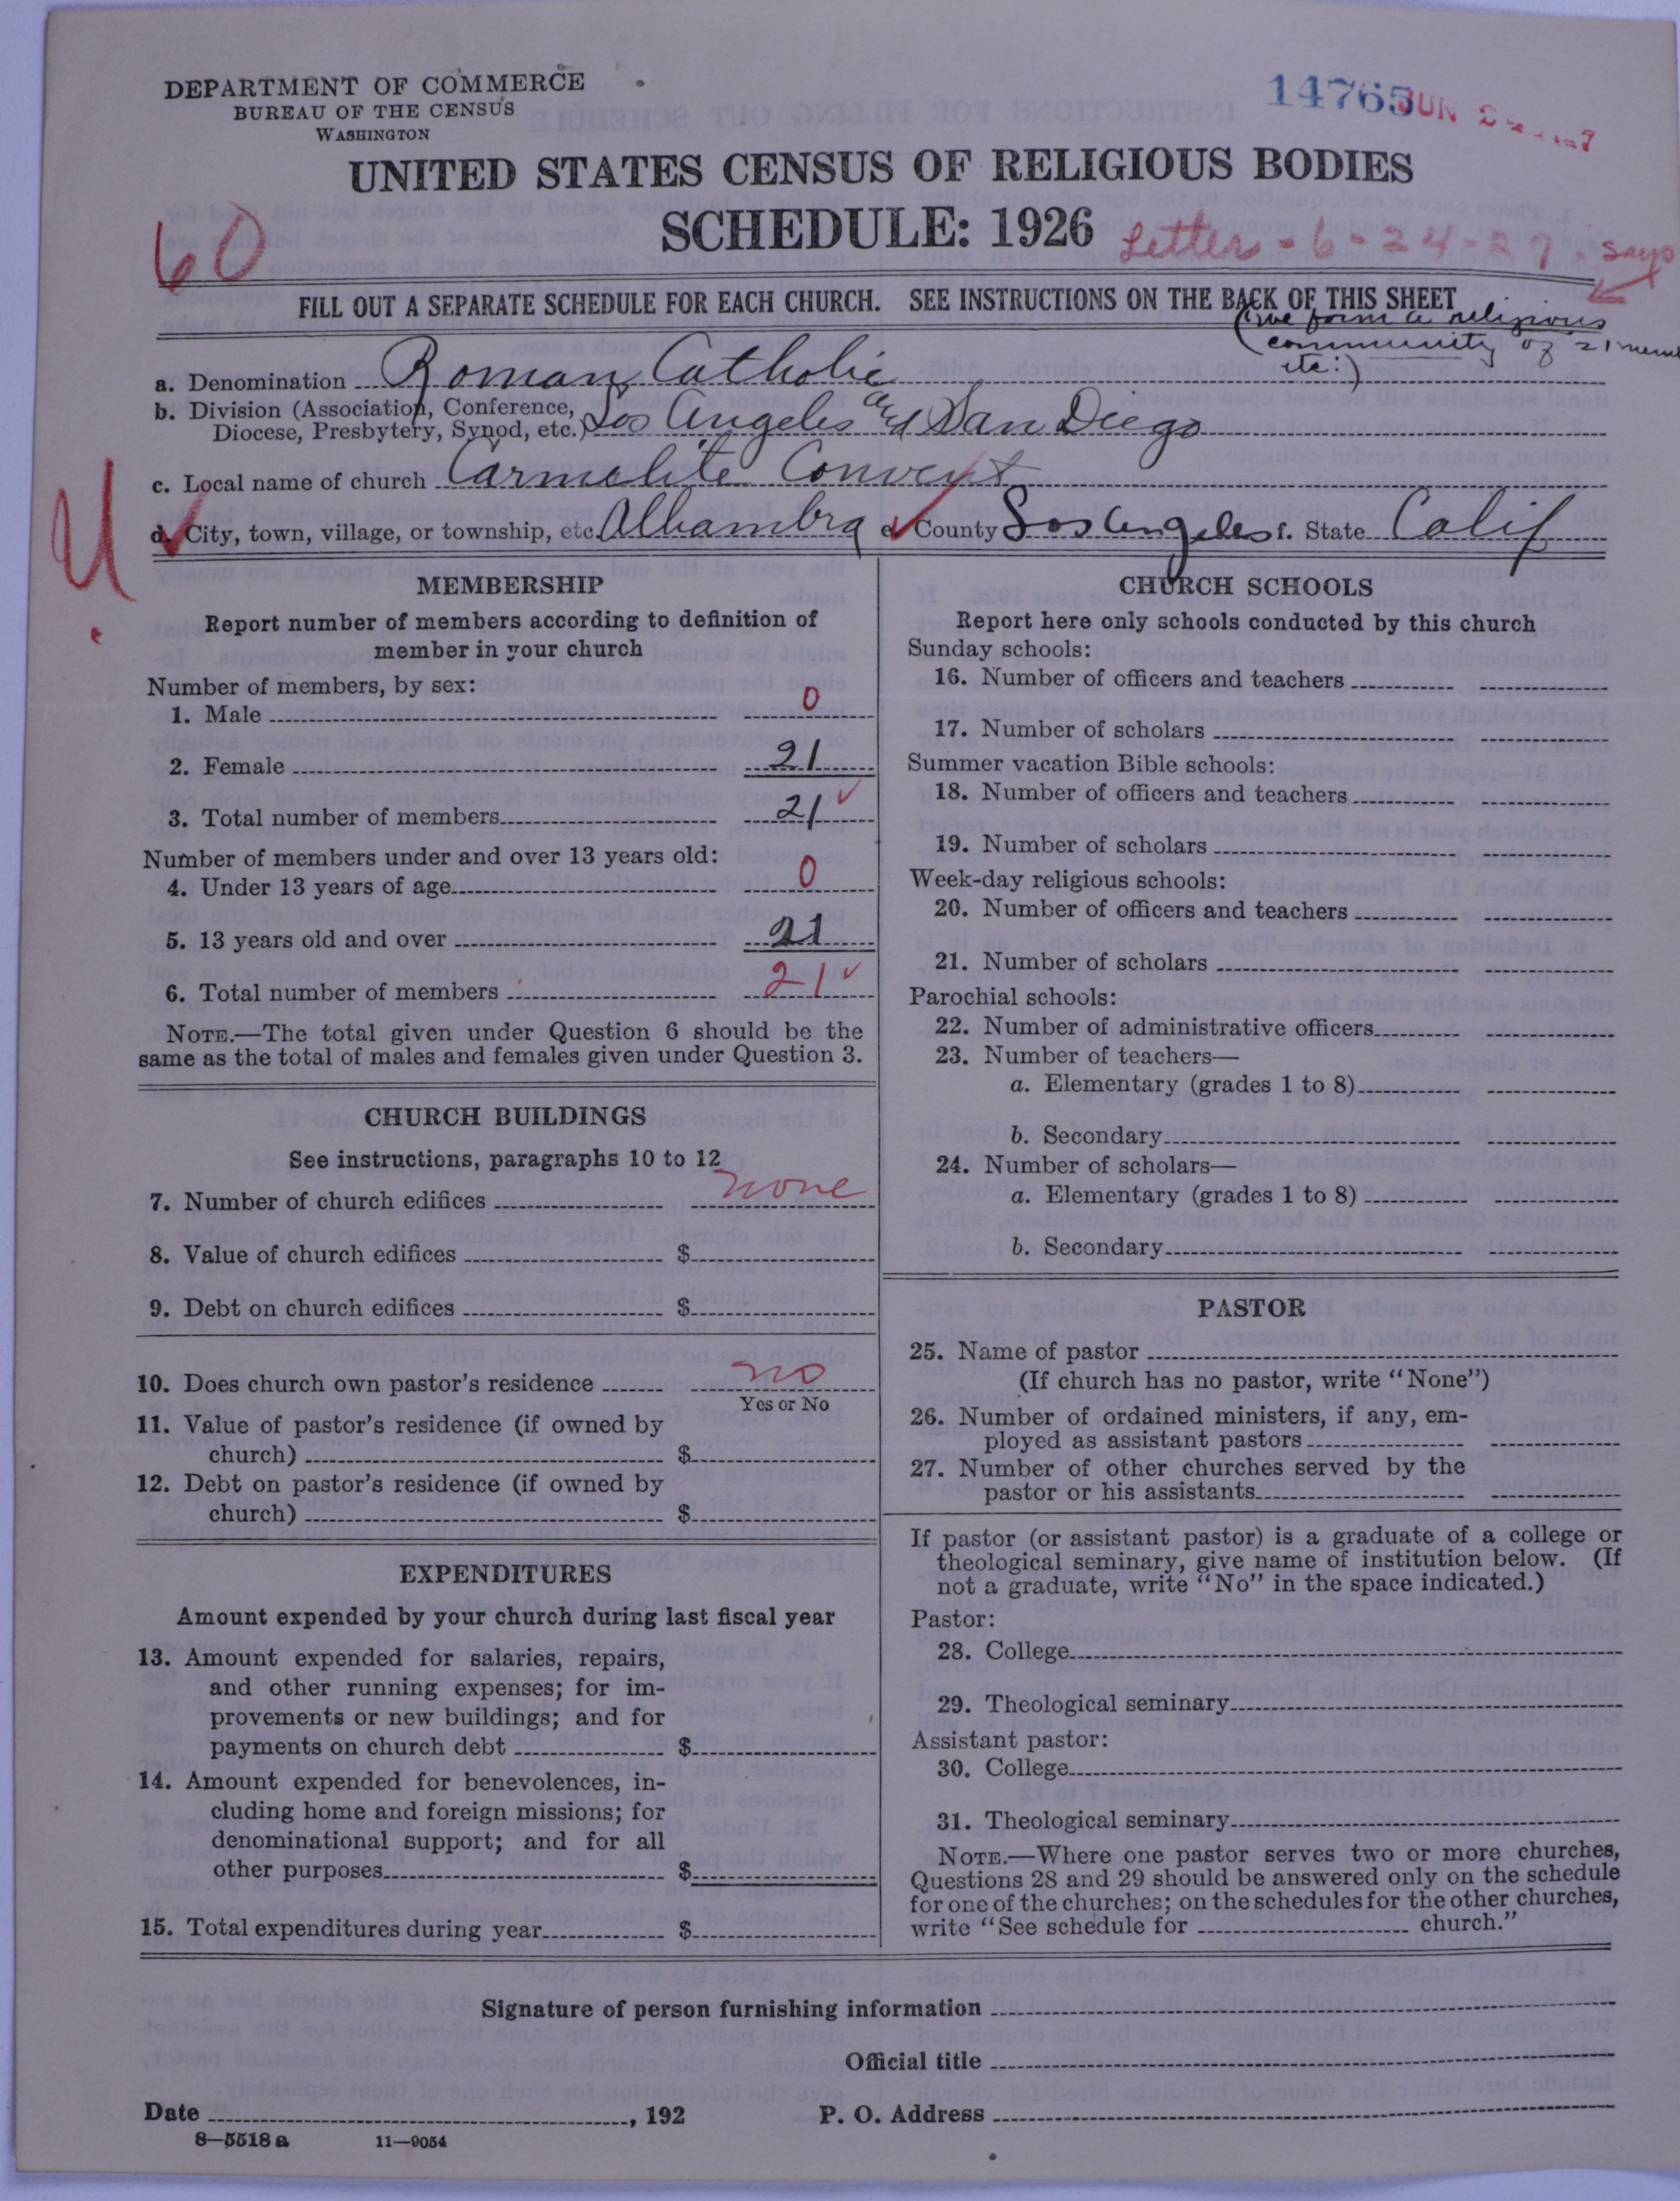 DEPARTMENT OF COMMERCE
BUREAU OF THE CENSUS
WASHINGTON
14765 JUN 24
UNITED STATES CENSUS OF RELIGIOUS BODIES
SCHEDULE: 1926
60
Letter - 6-24-27 - says
FILL OUT A SEPARATE SCHEDULE FOR EACH CHURCH. SEE INSTRUCTIONS ON THE BACK OF THIS SHEET
(we form a religious
community of 21 mem
etc:)
a. Denomination Roman Catholic
b. Division (Association, Conference,
Diocese, Presbytery, Synod, etc.) Los Angeles and San Diego
c. Local name of church Carmelite Convent
U.
d. City, town, village, or township, etc. Alhambra e. County Los Angeles f. State Calif
MEMBERSHIP
Report number of members according to definition of
member in your church
Number of members, by sex:
1. Male 0
2. Female 21
3. Total number of members 21 ✓
Number of members under and over 13 years old:
4. Under 13 years of age 0
5. 13 years old and over 21
6. Total number of members 21 ✓
NOTE.—The total given under Question 6 should be the
same as the total of males and females given under Question 3.
CHURCH BUILDINGS
See instructions, paragraphs 10 to 12
7. Number of church edifices none
8. Value of church edifices $
9. Debt on church edifices $
10. Does church own pastor's residence no
Yes or No
11. Value of pastor's residence (if owned by
church) $
12. Debt on pastor's residence (if owned by
church) $
EXPENDITURES
Amount expended by your church during last fiscal year
13. Amount expended for salaries, repairs,
and other running expenses; for im-
provements or new buildings; and for
payments on church debt $
14. Amount expended for benevolences, in-
cluding home and foreign missions; for
denominational support; and for all
other purposes $
15. Total expenditures during year $
CHURCH SCHOOLS
Report here only schools conducted by this church
Sunday schools:
16. Number of officers and teachers
17. Number of scholars
Summer vacation Bible schools:
18. Number of officers and teachers
19. Number of scholars
Week-day religious schools:
20. Number of officers and teachers
21. Number of scholars
Parochial schools:
22. Number of administrative officers
23. Number of teachers—
a. Elementary (grades 1 to 8)
b. Secondary
24. Number of scholars—
a. Elementary (grades 1 to 8)
b. Secondary
PASTOR
25. Name of pastor
(If church has no pastor, write "None")
26. Number of ordained ministers, if any, em-
ployed as assistant pastors
27. Number of other churches served by the
pastor or his assistants
If pastor (or assistant pastor) is a graduate of a college or
theological seminary, give name of institution below. (If
not a graduate, write "No" in the space indicated.)
Pastor:
28. College
29. Theological seminary
Assistant pastor:
30. College
31. Theological seminary
NOTE.—Where one pastor serves two or more churches,
Questions 28 and 29 should be answered only on the schedule
for one of the churches; on the schedules for the other churches,
write "See schedule for church."
Signature of person furnishing information
Official title
Date , 192 P. O. Address
8—5518 a 11—9054